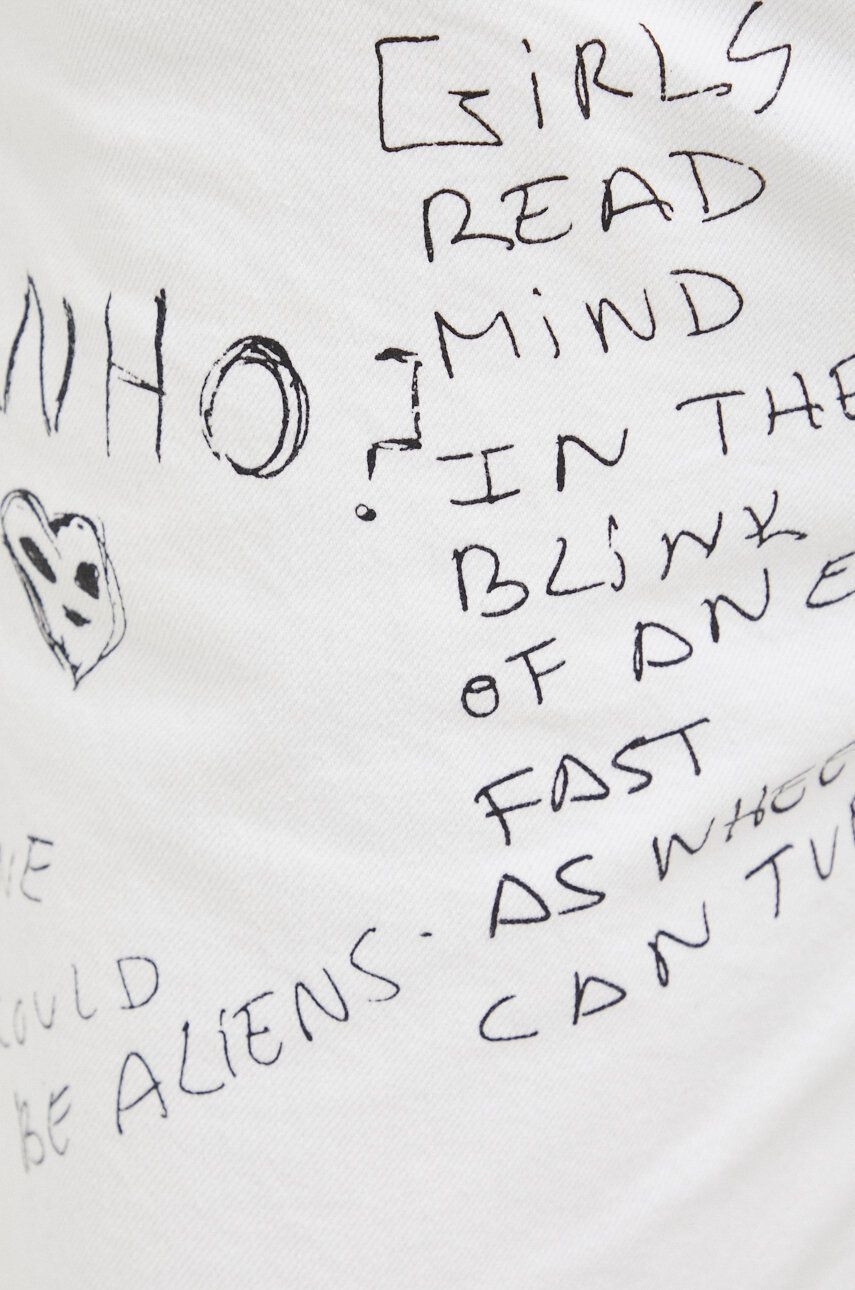 GiRLS
READ
MiND
IN THE
BLiNK
OF AN E
FAST
AS WHEE
CAN TU
WHO ?
WE
COULD
BE ALIENS.